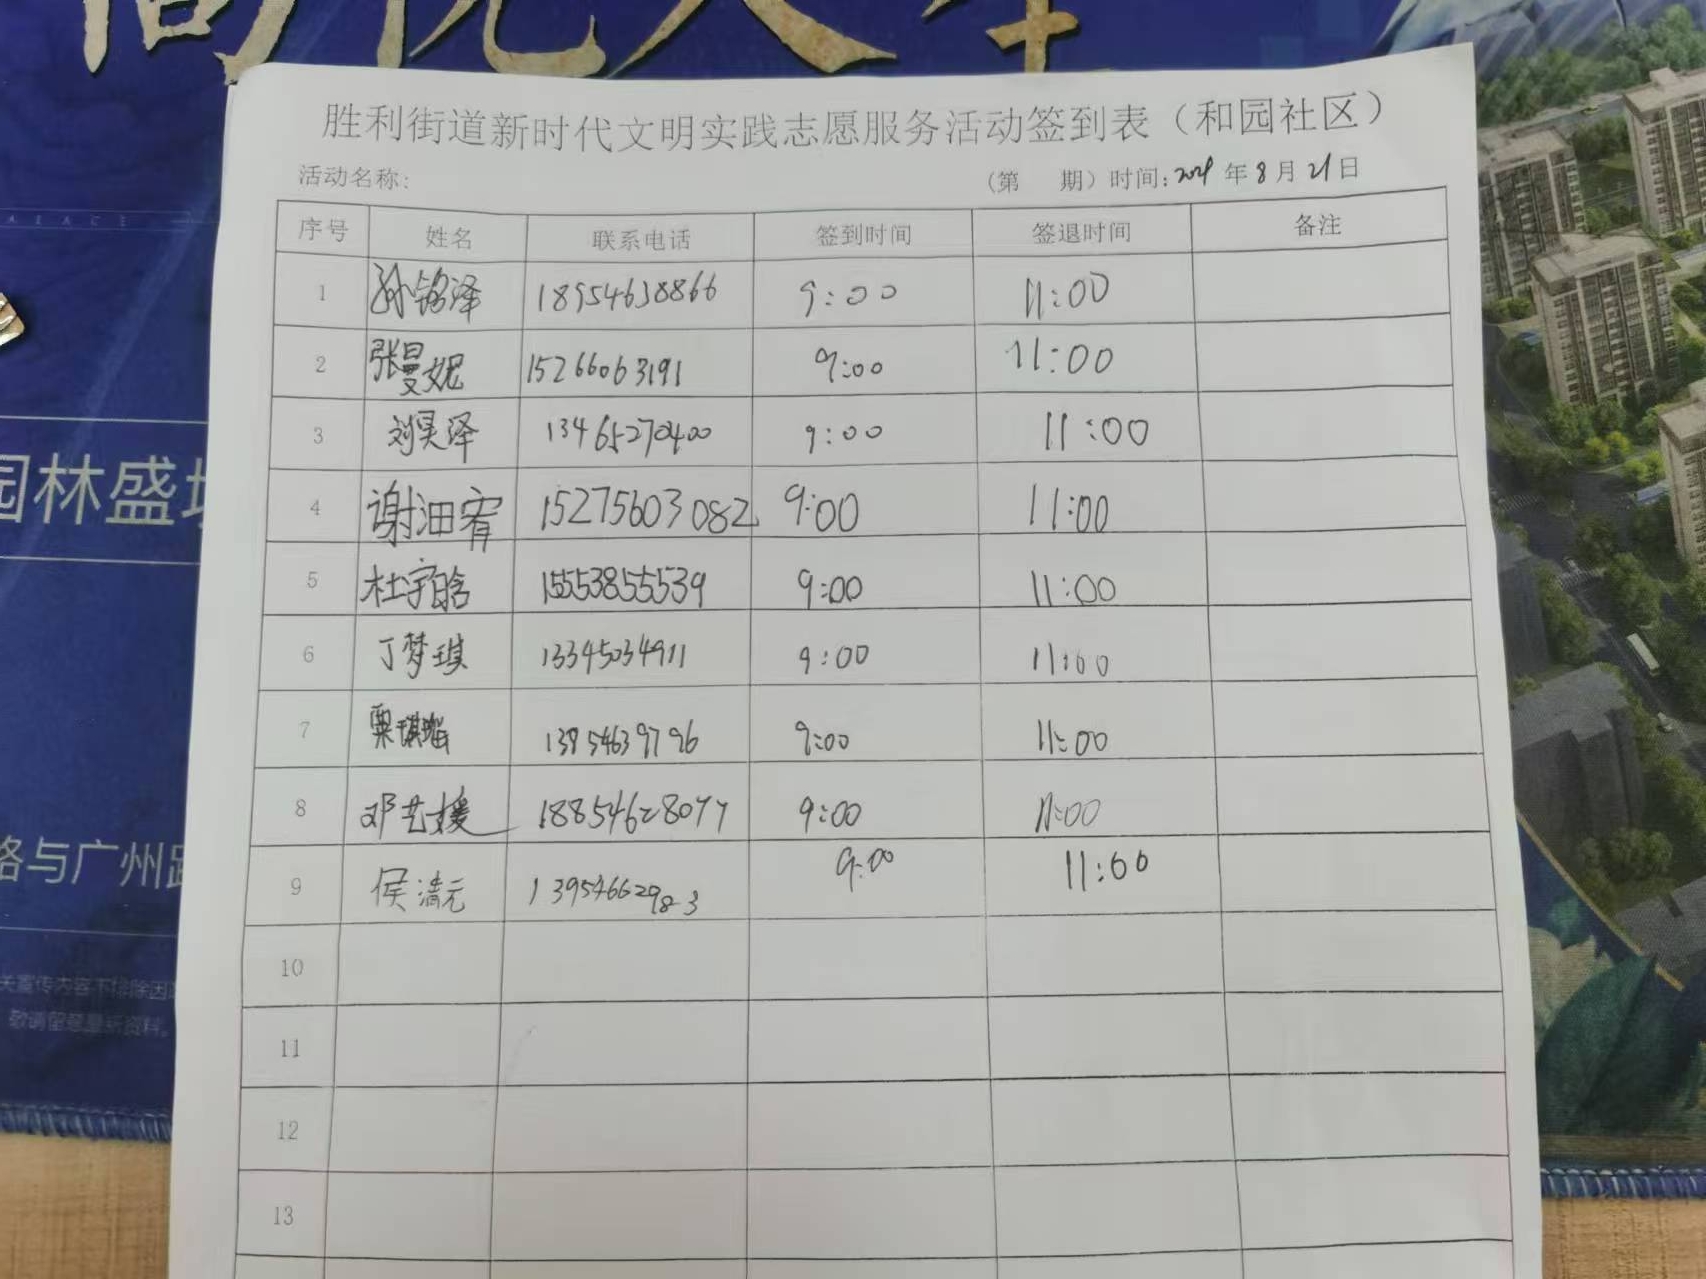 园林盛
路与广州路
敬请留意最新资料。
胜利街道新时代文明实践志愿服务活动签到表（和园社区）
活动名称： （第 期）时间: 年 8 月 21 日
序号 姓名 联系电话 签到时间 签退时间 备注
1 孙铭泽 18954638866 9:00 11:00
2 张曼妮 15266063191 9:00 11:00
3 刘昊泽 13465270400 9:00 11:00
4 谢沺宥 15275603082 9:00 11:00
5 杜宇晗 15553855539 9:00 11:00
6 丁梦琪 13345034911 9:00 11:00
7 13954639796 9:00 11:00
8 邓艺媛 18854628077 9:00 11:00
9 侯清元 13954662983 9:00 11:00
10
11
12
13